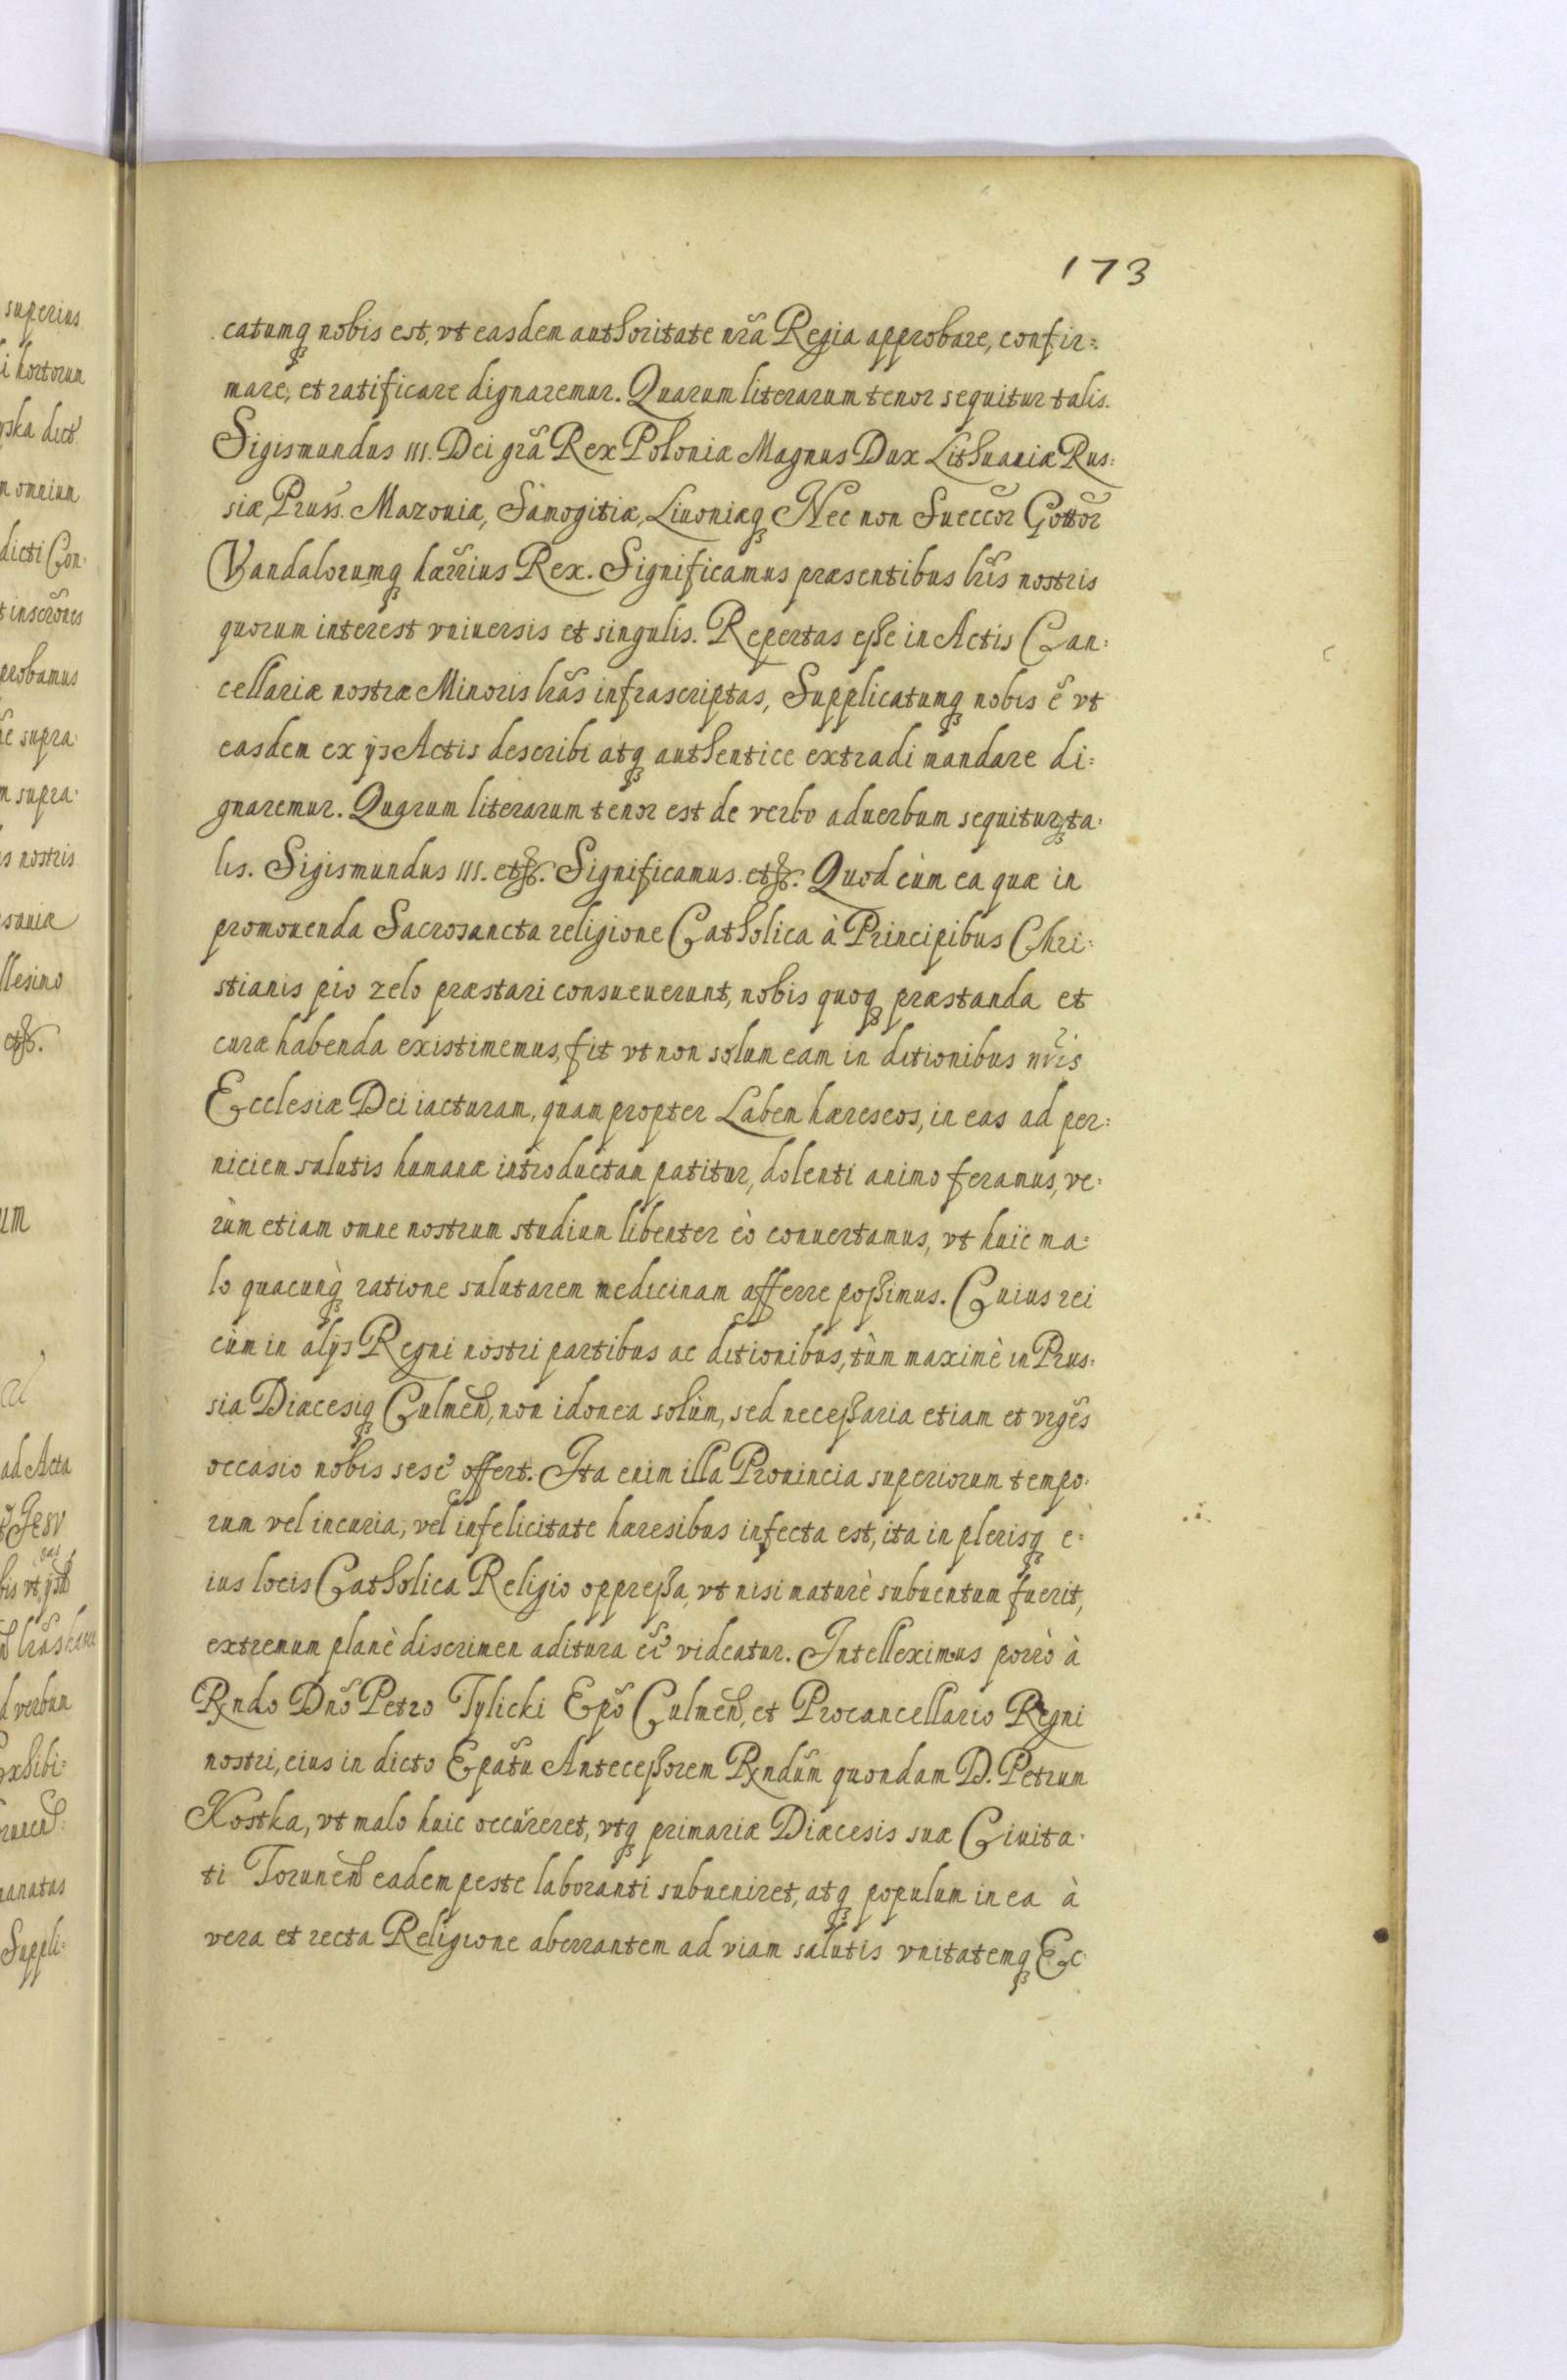 173
catumq nobis est, vt easdem authoritate nra Regia approbare, confir=
mare, et ratificare dignaremur. Quarum literarum tenor sequitur talis.
Sigismundus III. Dei gra Rex Poloniæ Magnus Dux Lithuaniæ Rus=
siæ, Pruss. Mazouiæ, Samogitiæ, Liuoniæq Nec non Sueccor Gottor
Vandalorumq hærrius Rex. Significamus præsentibus lris nostris
quorum interest vniuersis et singulis. Repertas esse in Actis Can=
cellariæ nostræ Minoris lras infrascriptas, Supplicatumq nobis e vt
easdem ex ijs Actis describi atq authentice extradi mandare di=
gnaremur. Quarum literarum tenor est de verbo aduerbum sequiturq ta=
lis. Sigismundus III. etc. Significamus etc. Quod cùm ea quæ in
promouenda Sacrosancta religione Catholica à Principibus Chri=
stianis pio zelo præstari consueuerunt, nobis quoq præstanda et
curæ habenda existimemus, fit vt non solum eam in ditionibus nris
Ecclesiæ Dei iacturam, quam propter Labem hæreseos, in eas ad per=
niciem salutis humanæ introductam patitur, dolenti animo feramus, ve=
rùm etiam omne nostrum studium libenter eò conuertamus, vt huic ma=
lo quacunq ratione salutarem medicinam afferre possimus. Cuius rei
cùm in alijs Regni nostri partibus ac ditionibus, tùm maximè in Prus=
sia Diæcesiq Culmen, non idonea solùm, sed necessaria etiam et vrges
occasio nobis sese offert. Ita enim illa Prouincia superiorum tempo=
rum vel incuria, vel infelicitate hæresibus infecta est, ita in plerisq e=
ius locis Catholica Religio oppressa, vt nisi maturè subuentum fuerit,
extremum planè discrimen aditura ee videatur. Intelleximus porrò à
Rndo Dno Petro Tylicki Epo Culmen, et Procancellario Regni
nostri, eius in dicto Epatu Antecessorem Rndum quondam D. Petrum
Kostka, vt malo huic occureret, vtq primariæ Diæcesis suæ Ciuita=
ti Torunen eadem peste laboranti subueniret, atq populum in ea à
vera et recta Religione aberrantem ad viam salutis vnitatemq Ec